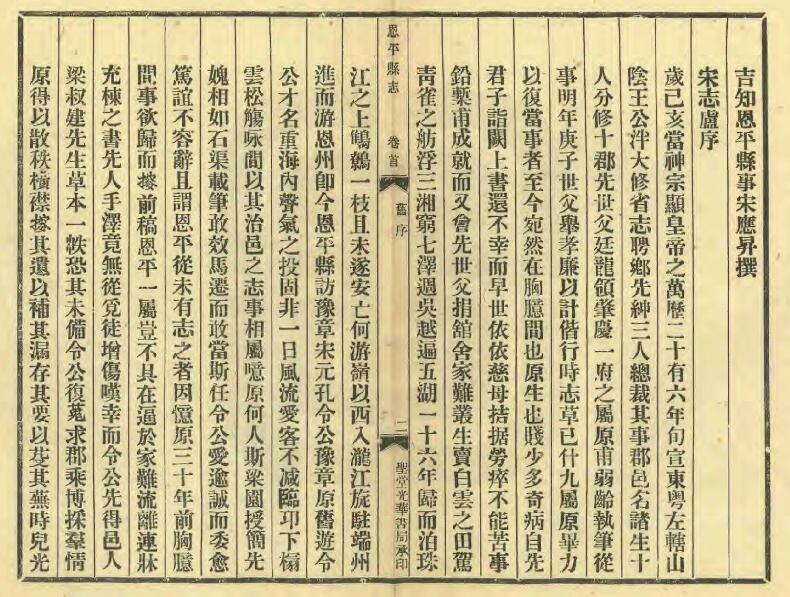 吉知恩平縣事宋應昇撰
宋志盧序
歲己亥當神宗顯皇帝之萬曆二十有六年旬宣東粵左轄山
陰王公泮大修省志聘鄉先紳三人總裁其事郡邑名諸生十
人分修十郡先世父廷龍領肇慶一府之屬原甫弱齡執筆從
事明年庚子世父舉孝廉以計偕行時志草已什九屬原畢力
以復當事者至今宛然在胸臆間也原生也賤少多奇病自先
君子詣闕上書還不幸而早世依依慈母拮据勞瘁不能苦事
鉛槧甫成就而又會先世父捐舘舍家難叢生賣白雲之田駕
靑雀之舫浮三湘窮七澤週吳越遍五湖一十六年歸而泊珠
恩平縣志
卷首
舊序
二
聖堂光華書局承印
江之上鷦鷯一枝且未遂安亡何游嶺以西入瀧江旋駐端州
進而游恩州卽今恩平縣訪豫章宋元孔令公豫章原舊遊令
公才名重海內聲氣之投固非一日風流愛客不减臨卭下榻
雲松觴咏間以其治邑之志事相屬噫原何人斯梁園授簡光
媿相如石渠載筆敢效馬遷而敢當斯任令公愛逾誠而委愈
篤誼不容辭且謂恩平從未有志之者因憶原三十年前胸臆
間事欲歸而搽前稿恩平一屬豈不具在逼於家難流離連牀
充棟之書先人手澤竟無從覓徒增傷嘆幸而令公先得邑人
梁叔建先生草本一帙恐其未備令公復蒐求郡乘博採羣情
原得以散秩橫襟搽其遺以補其漏存其要以芟其蕪時兒光